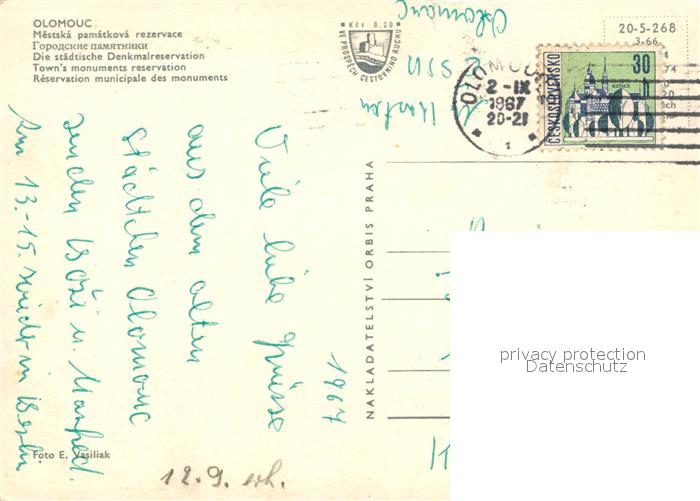 OLOMOUC
Městská památková rezervace
Городские памятники
Die städtische Denkmalreservation
Town's monuments reservation
Réservation municipale des monuments
Kčs 0,20
VE PROSPĚCH CESTOVNÍHO RUCHU
20-5-268
3-66
OLOMOUC
2-IX
1967
20-21
1
ČESKOSLOVENSKO
30
KOŠICE
Olomouc
ČSSR
1967
Viele liebe Grüsse
aus dem alten
Städtchen Olomouc
senden u. Manfred.
Am 13.-15. wieder in Berlin
NAKLADATELSTVÍ ORBIS PRAHA
Foto E. Vasiliak
12.9. erh.
privacy protection
Datenschutz